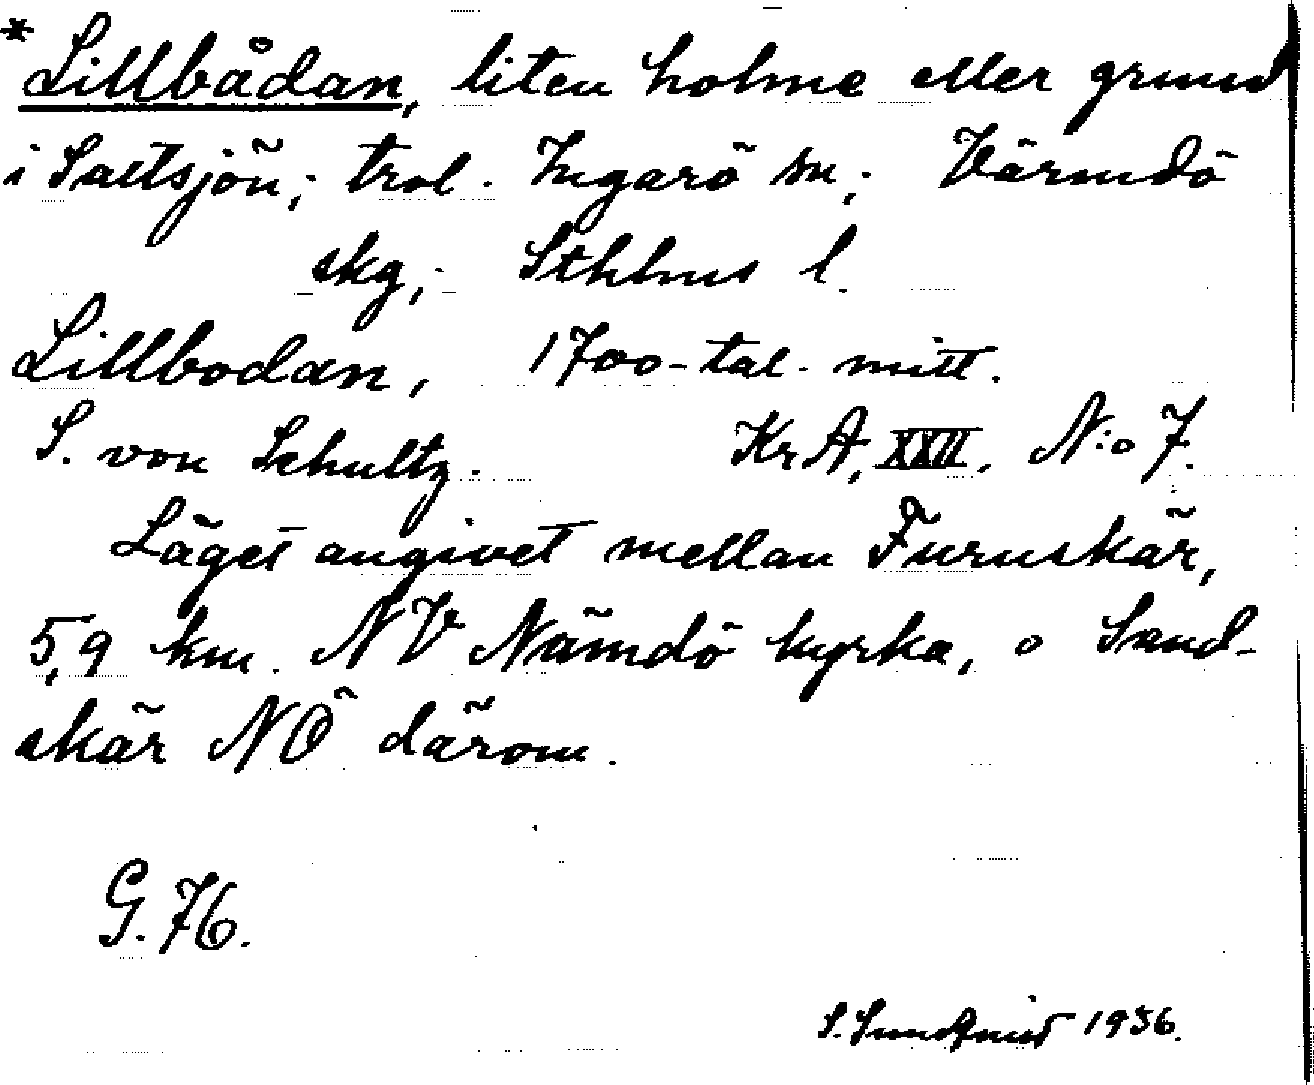 * Lillbådan, liten holme eller grund
i Saltsjön; trol. Ingarö sn; Värmdö
skg; Sthlms l.
Lillbodan, 1700-tal. mitt.
S. von Schultz. KrA, XXII. N:o 7.
Läget angivet mellan Furuskär,
5,9 km. NV Nämdö kyrka, o Sand-
skär NO därom.
G. 76.
S. Sundqvist 1936.